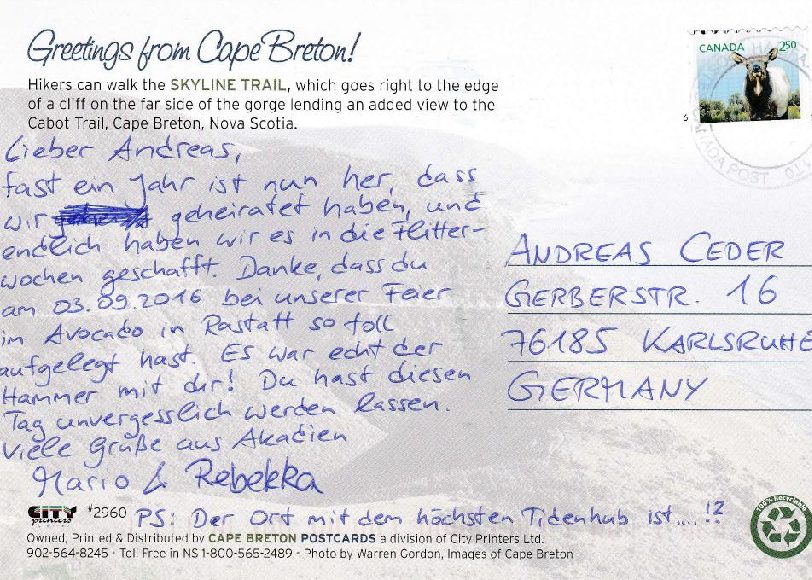 Greetings from Cape Breton!
Hikers can walk the SKYLINE TRAIL, which goes right to the edge
of a cliff on the far side of the gorge lending an added view to the
Cabot Trail, Cape Breton, Nova Scotia.
CANADA 250
CANADA POST
Lieber Andreas,
fast ein Jahr ist nun her, dass
wir geheiratet haben, und
endlich haben wir es in die Flitter-
wochen geschafft. Danke, dass du
am 03.09.2016 bei unserer Feier
im Avocado in Rastatt so toll
aufgelegt hast. Es war echt der
Hammer mit dir! Du hast diesen
Tag unvergesslich werden lassen.
Viele Grüße aus Akadien
Mario & Rebekka
ANDREAS CEDER
GERBERSTR. 16
76185 KARLSRUHE
GERMANY
CITY printers #2960
PS: Der Ort mit dem höchsten Tidenhub ist....!?
Owned, Printed & Distributed by CAPE BRETON POSTCARDS a division of City Printers Ltd.
902-564-8245 · Toll Free in NS 1-800-565-2489 · Photo by Warren Gordon, Images of Cape Breton
100% RECYCLED